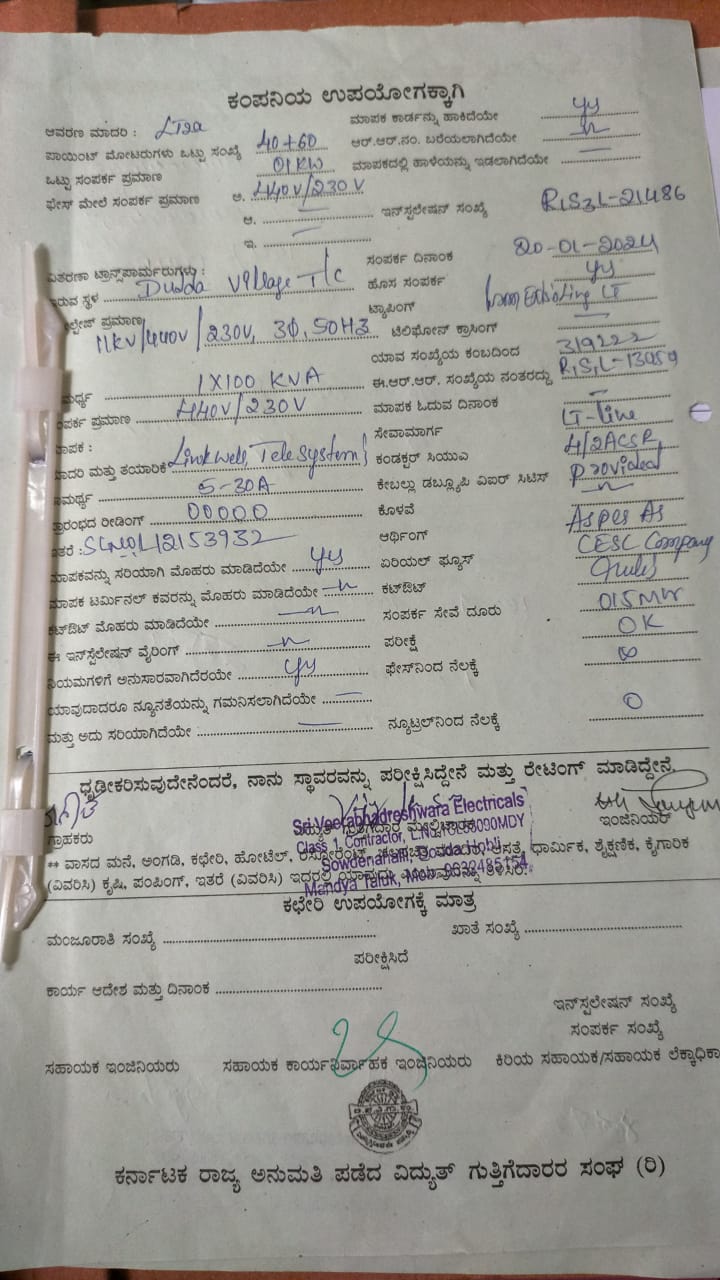 ಕಂಪನಿಯ ಉಪಯೋಗಕ್ಕಾಗಿ
ಆವರಣ ಮಾದರಿ : LT2a ಮಾಪಕ ಕಾರ್ಡನ್ನು ಹಾಕಿದೆಯೇ ys
ಪಾಯಿಂಟ್ ಮೋಟರುಗಳು ಒಟ್ಟು ಸಂಖ್ಯೆ 40+60 ಆರ್.ಆರ್.ನಂ. ಬರೆಯಲಾಗಿದೆಯೇ
ಒಟ್ಟು ಸಂಪರ್ಕ ಪ್ರಮಾಣ 01KW ಮಾಪಕದಲ್ಲಿ ಹಾಳೆಯನ್ನು ಇಡಲಾಗಿದೆಯೇ
ಫೇಸ್ ಮೇಲೆ ಸಂಪರ್ಕ ಪ್ರಮಾಣ ಅ. 440V/230V
ಆ. ಇನ್‌ಸ್ಪಲೇಷನ್ ಸಂಖ್ಯೆ R1S3L-21486
ಇ.
ವಿತರಣಾ ಟ್ರಾನ್ಸ್‌ಪಾರ್ಮರುಗಳು : ಸಂಪರ್ಕ ದಿನಾಂಕ 20-01-2024
ಇರುವ ಸ್ಥಳ Dudda Village T/c ಹೊಸ ಸಂಪರ್ಕ ys
ಟ್ಯಾಪಿಂಗ್ from Existing LT
ಪ್ರಮಾಣ 11KV/440V/230V, 3Φ, 50HZ ಟಿಲಿಫೋನ್ ಕ್ರಾಸಿಂಗ್
ಯಾವ ಸಂಖ್ಯೆಯ ಕಂಬದಿಂದ 319222
1X100 KVA ಈ.ಆರ್.ಆರ್. ಸಂಖ್ಯೆಯ ನಂತರದ್ದು R1S1L-13059
ಪ್ರಮಾಣ 440V/230V ಮಾಪಕ ಓದುವ ದಿನಾಂಕ
ಸೇವಾಮಾರ್ಗ LT-line
ಮಾದರಿ ಮತ್ತು ತಯಾರಿಕೆ Linkwell, TeleSystem ಕಂಡಕ್ಟರ್ ಸಿಯುವಿ 4/2ACSR
5-30A ಕೇಬಲ್ಲು ಡಬ್ಲ್ಯೂಪಿ ವಿಐರ್ ಸಿಟಿಸ್ Provided
ಪ್ರಾರಂಭದ ರೀಡಿಂಗ್ 00000 ಕೊಳವೆ
ಇತರೆ : 12153932 ಆರ್ಥಿಂಗ್ As per As
ಮಾಪಕವನ್ನು ಸರಿಯಾಗಿ ಮೊಹರು ಮಾಡಿದೆಯೇ ys ಏರಿಯಲ್ ಫ್ಯೂಸ್ CESC Company
ಮಾಪಕ ಟರ್ಮಿನಲ್ ಕವರನ್ನು ಮೊಹರು ಮಾಡಿದೆಯೇ ಕಟ್‌ಔಟ್ rules
ಕಟ್‌ಔಟ್ ಮೊಹರು ಮಾಡಿದೆಯೇ ಸಂಪರ್ಕ ಸೇವೆ ದೂರು 015
ಈ ಇನ್‌ಸ್ಪಲೇಷನ್ ವೈರಿಂಗ್ ಪರೀಕ್ಷೆ OK
ನಿಯಮಗಳಿಗೆ ಅನುಸಾರವಾಗಿದೆರಯೇ ys ಫೇಸ್‌ನಿಂದ ನೆಲಕ್ಕೆ ∞
ಯಾವುದಾದರೂ ನ್ಯೂನತೆಯನ್ನು ಗಮನಿಸಲಾಗಿದೆಯೇ
ಮತ್ತು ಅದು ಸರಿಯಾಗಿದೆಯೇ ನ್ಯೂಟ್ರಲ್‌ನಿಂದ ನೆಲಕ್ಕೆ 0
ಧೃಡೀಕರಿಸುವುದೇನೆಂದರೆ, ನಾನು ಸ್ಥಾವರವನ್ನು ಪರೀಕ್ಷಿಸಿದ್ದೇನೆ ಮತ್ತು ರೇಟಿಂಗ್ ಮಾಡಿದ್ದೇನೆ.
Sri Veerabhadreshwara Electricals
ಗ್ರಾಹಕರು ಇಂಜಿನಿಯರ್
Class 1 Contractor,
** ವಾಸದ ಮನೆ, ಅಂಗಡಿ, ಕಛೇರಿ, ಹೋಟೆಲ್, ಆಸ್ಪತ್ರೆ, ಧಾರ್ಮಿಕ, ಶೈಕ್ಷಣಿಕ, ಕೈಗಾರಿಕೆ
Dudda Hobli
(ವಿವರಿಸಿ) ಕೃಷಿ, ಪಂಪಿಂಗ್, ಇತರೆ (ವಿವರಿಸಿ) ಇದರಲ್ಲಿ ತಿಳಿಸಿರಿ.
Mandya Taluk,
ಕಛೇರಿ ಉಪಯೋಗಕ್ಕೆ ಮಾತ್ರ
ಮಂಜೂರಾತಿ ಸಂಖ್ಯೆ ಖಾತೆ ಸಂಖ್ಯೆ
ಪರೀಕ್ಷಿಸಿದೆ
ಕಾರ್ಯ ಆದೇಶ ಮತ್ತು ದಿನಾಂಕ
ಇನ್‌ಸ್ಪಲೇಷನ್ ಸಂಖ್ಯೆ
ಸಂಪರ್ಕ ಸಂಖ್ಯೆ
ಸಹಾಯಕ ಇಂಜಿನಿಯರು ಸಹಾಯಕ ಕಾರ್ಯನಿರ್ವಾಹಕ ಇಂಜಿನಿಯರು ಕಿರಿಯ ಸಹಾಯಕ/ಸಹಾಯಕ ಲೆಕ್ಕಾಧಿಕಾ
ಕರ್ನಾಟಕ ರಾಜ್ಯ ಅನುಮತಿ ಪಡೆದ ವಿದ್ಯುತ್ ಗುತ್ತಿಗೆದಾರರ ಸಂಘ (ರಿ)